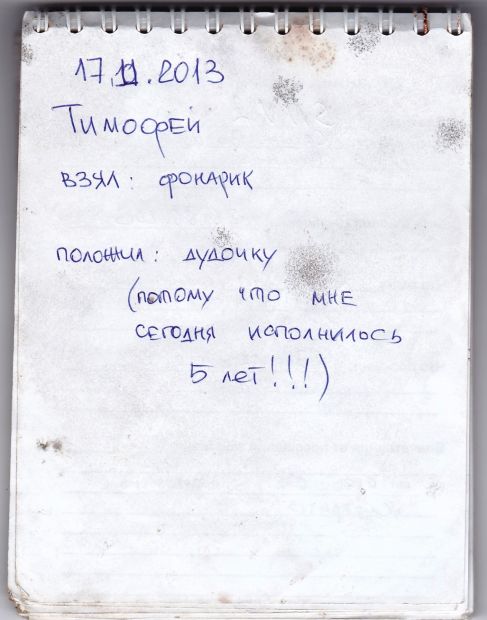 17.11.2013
Тимофей
взял: фонарик
положил: дудочку
(потому что мне
сегодня исполнилось
5 лет!!!)